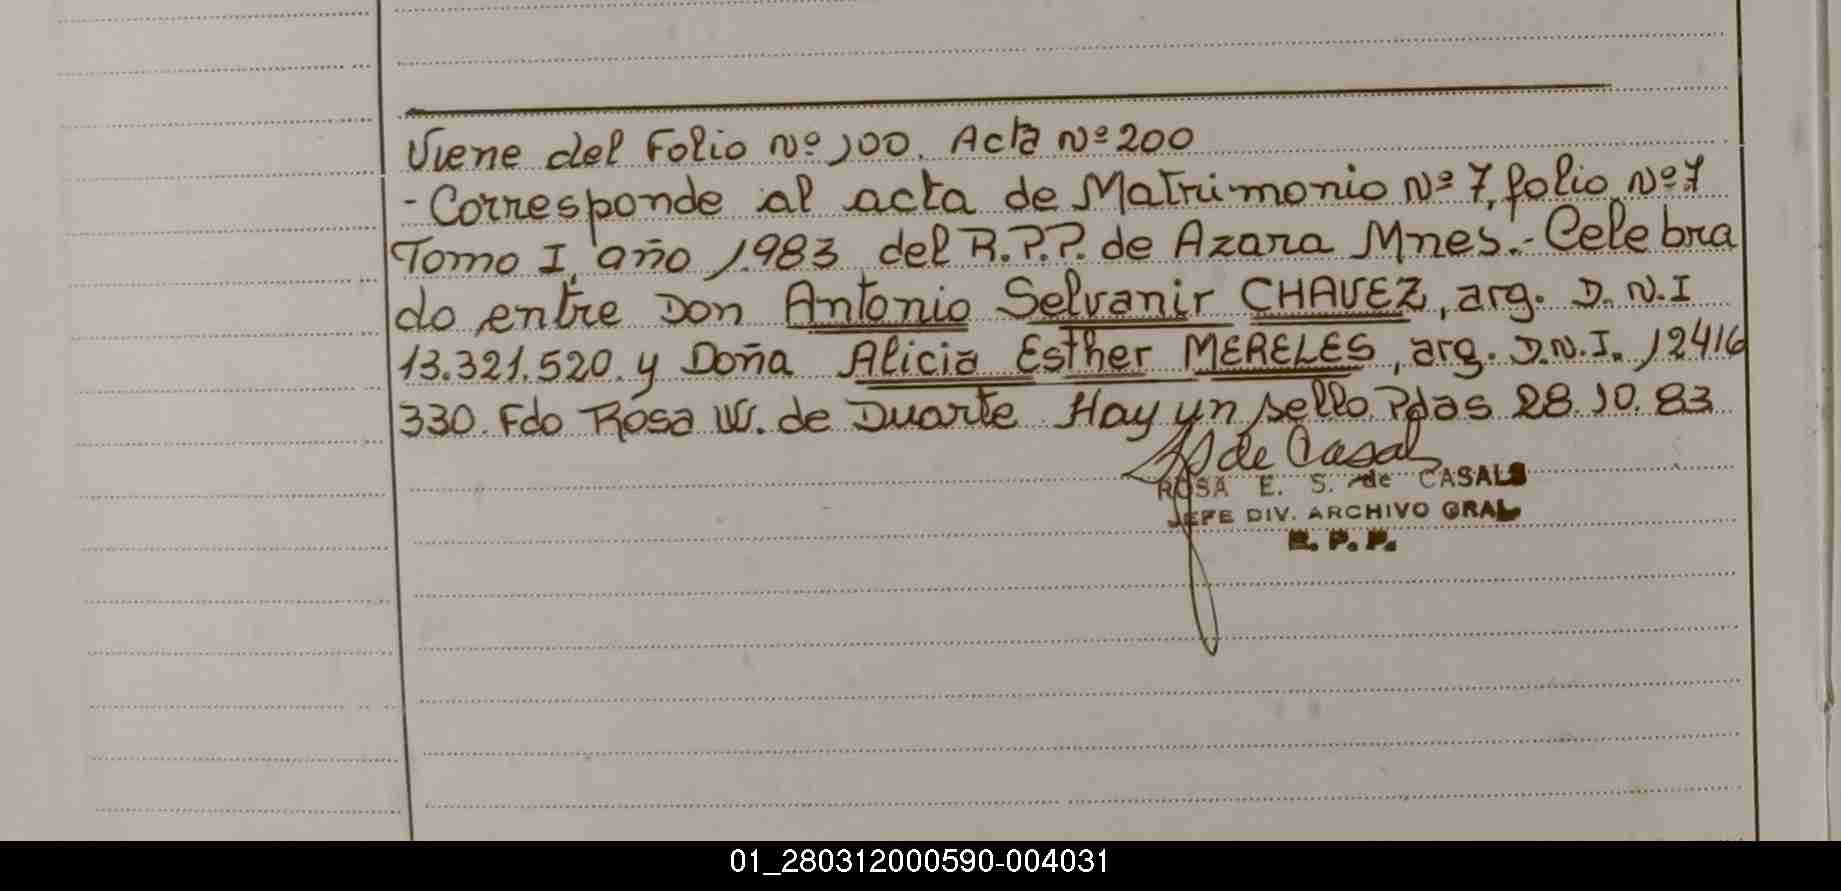 Viene del Folio Nº 100. Acta Nº 200
- Corresponde al acta de Matrimonio Nº 7, folio Nº 7
Tomo I, año 1.983 del R.P.P. de Azara Mnes.- Celebra
do entre Don Antonio Selvanir CHAVEZ, arg. D.N.I
13.321.520. y Doña Alicia Esther MERELES, arg. D.N.I. 12416
330. Fdo Rosa W. de Duarte. Hay un sello. Pdas 28.10.83
de Casals
ROSA E. S. de CASALS
JEFE DIV. ARCHIVO GRAL
R. P. P.
01_280312000590-004031